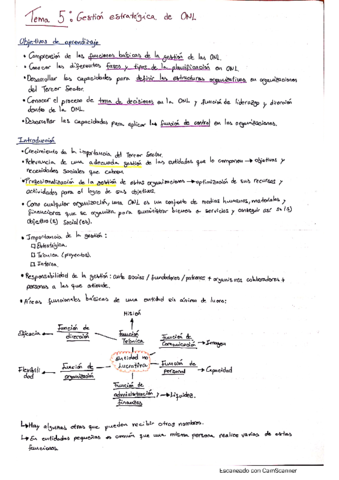 Tema 5: Gestión estratégica de ONL
Objetivos de aprendizaje
• Comprensión de las funciones básicas de la gestión de las ONL.
• Conocer las diferentes fases y tipos de la planificación en ONL
• Desarrollar las capacidades para definir las estructuras organizativas en organizaciones
del Tercer Sector.
• Conocer el proceso de toma de decisiones en la ONL y función de liderazgo y dirección
dentro de la ONL.
• Desarrollar las capacidades para aplicar la función de control en las organizaciones.
Introducción
• Crecimiento de la importancia del Tercer Sector.
• Relevancia de una adecuada gestión de las entidades que lo componen → objetivos y
necesidades sociales que cubren
• Profesionalización de la gestión de estas organizaciones → optimización de sus recursos y
actividades para el logro de sus objetivos.
• Como cualquier organización, una ONL es un conjunto de medios humanos, materiales y
financieros que se organiza para suministrar bienes o servicios y conseguir así su(s)
objetivo(s) social(es).
• Importancia de la gestión:
□ Estratégica.
□ Técnica (proyectos).
□ Interna.
• Responsabilidad de la gestión: ante socios / fundadores / patronos + organismos colaboradores +
personas a las que atiende.
• Áreas funcionales básicas de una entidad sin ánimo de lucro:
Misión
Eficacia ← Función de dirección
Función Técnica
Función de comunicación → Imagen
Entidad no Lucrativa
Flexibilidad ← Función de organización
Función de personal → Capacidad
Función de administración/finanzas → Liquidez
↳ Hay algunas otras que pueden recibir otros nombres.
↳ En entidades pequeñas es común que una misma persona realice varias de estas
funciones.
Escaneado con CamScanner